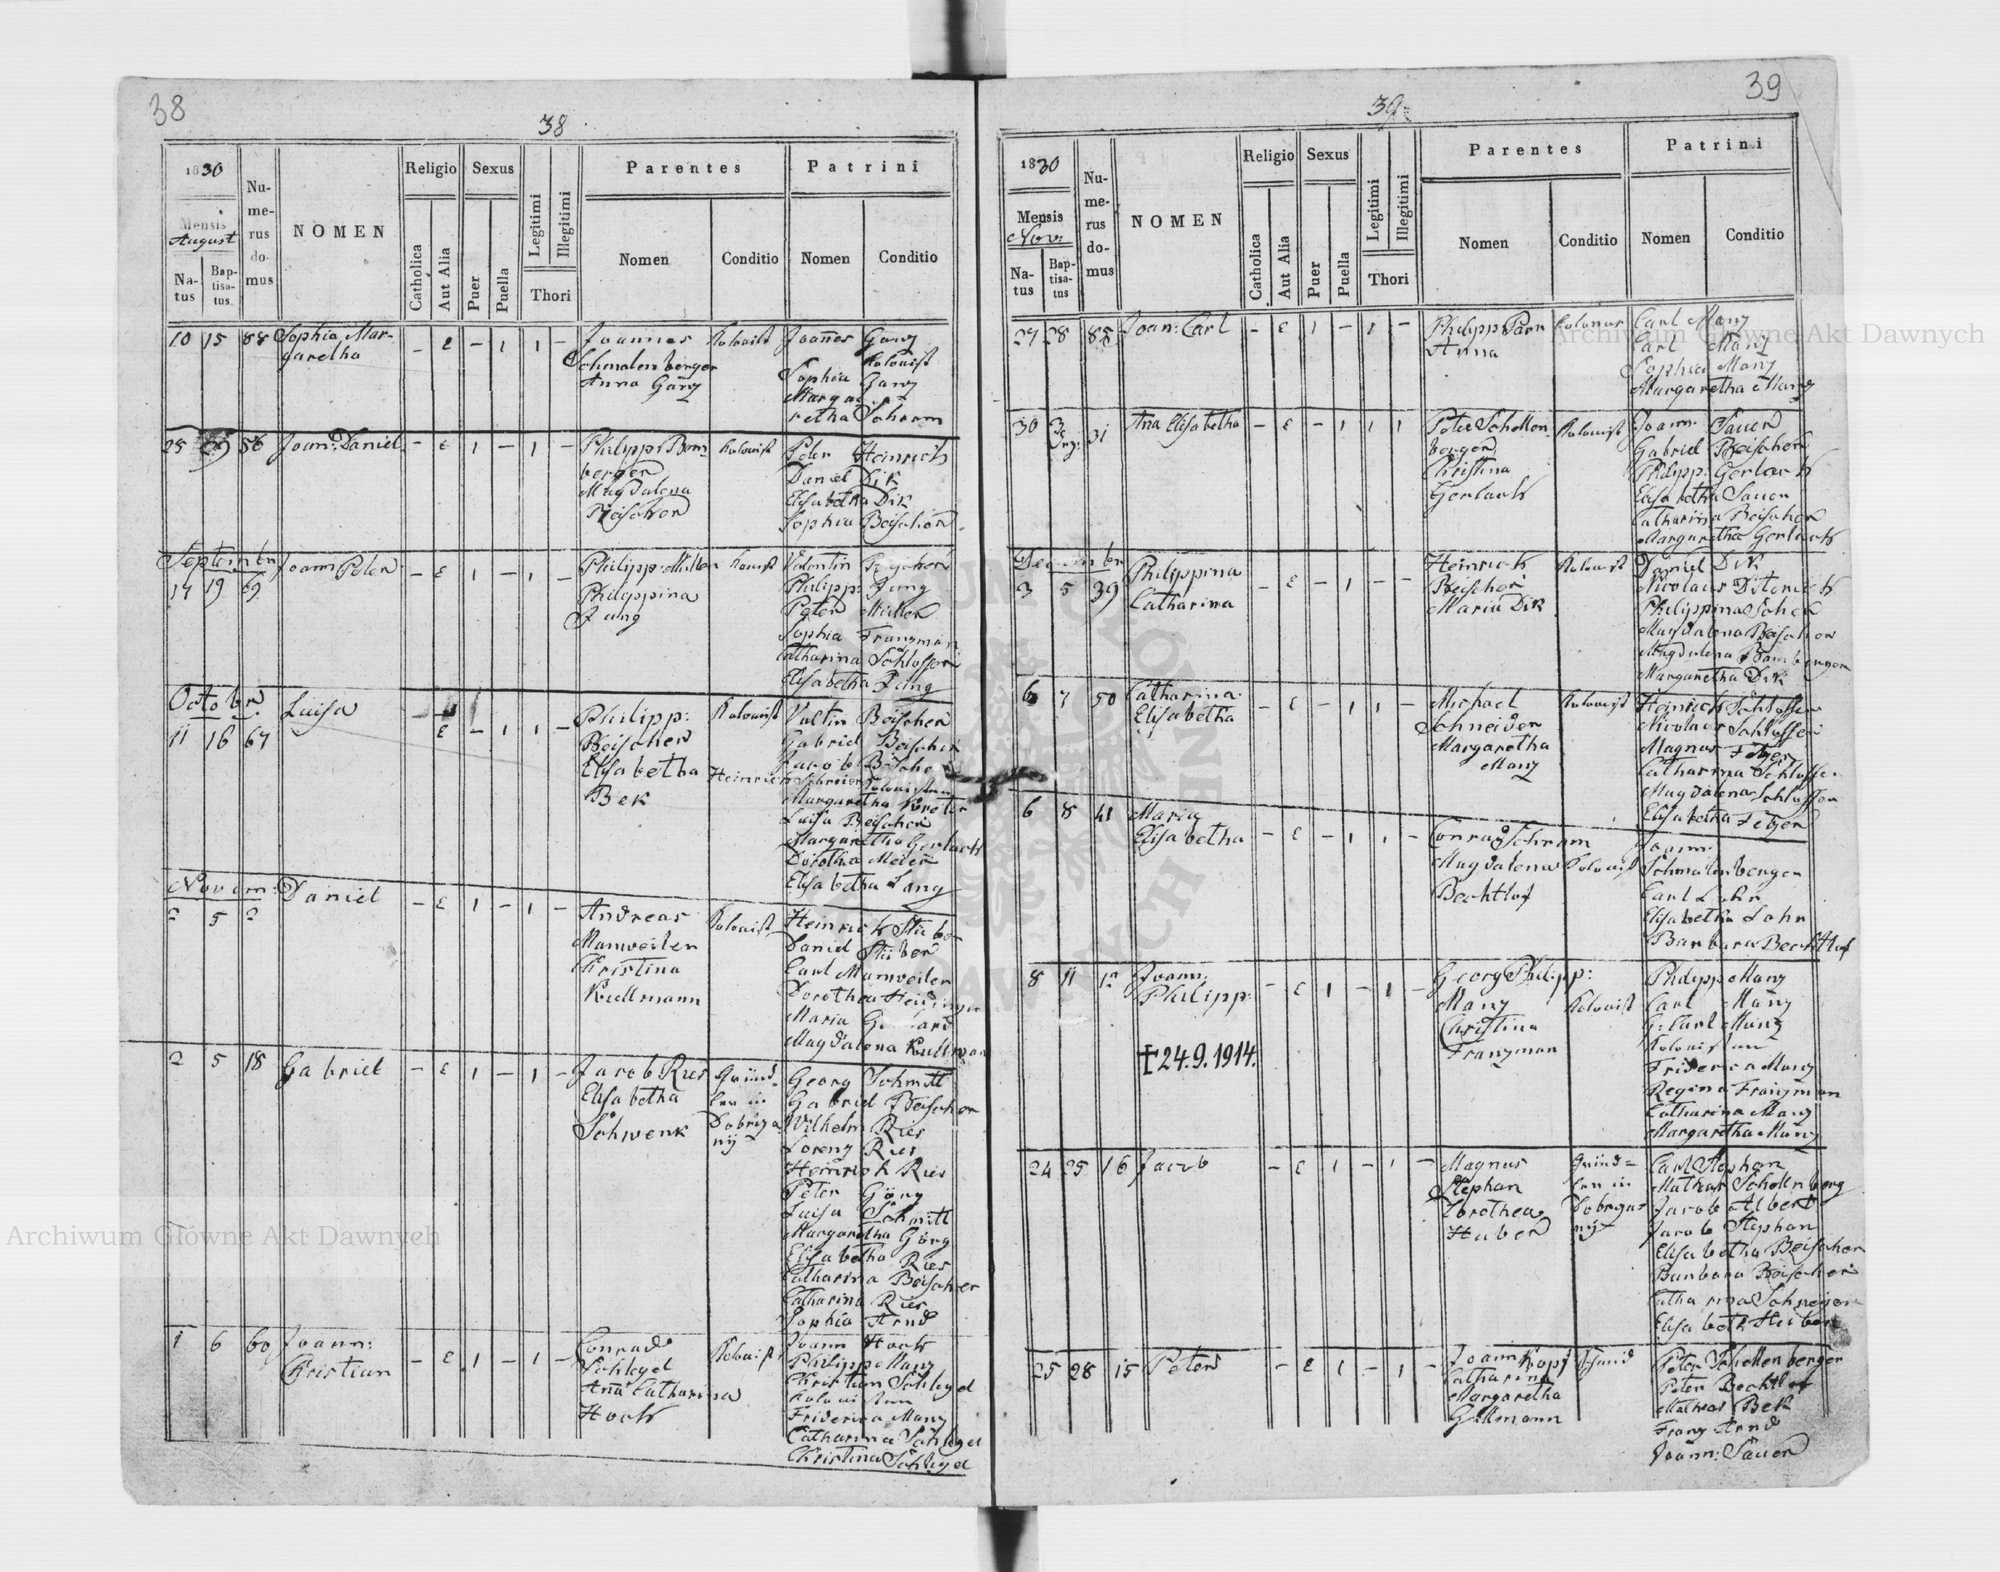 38
38
1830
Mensis
August
Na-
tus
Bap-
tisa-
tus
Nu-
me-
rus
do-
mus
NOMEN
Religio
Catholica
Aut Alia
Sexus
Puer
Puella
Legitimi
Illegitimi
Thori
Parentes
Nomen
Conditio
Patrini
Nomen
Conditio
10 15 88 Sophia Mar-
garetha
- E - 1 1 -
Joannes
Schmalenberger
Anna Ganz
Kolonist
Joañes Ganz
Kolonist
Sophia Ganz
Marga
retha Schramm
25 29 56 Joan: Daniel
- E 1 - 1 -
Philipp Bam-
berger
Magdalena
Beischer
Kolonist
Peter Heinrich
Daniel Dik
Elisabetha Dik
Sophia Beischer
Septembr
17 19 69 Joann Peter
- E 1 - 1 -
Philipp: Müller
Philippina
Jung
Kolonist
Valentin
Philipp: Jung
Peter Müller
Sophia Franzman
Catharina Schlosser
Elisabetha Jung
Octobr
11 16 67 Luisa
- E - 1 1 -
Philipp:
Beischer
Elisabetha
Bek
Kolonist
Valtin Beischer
Gabriel Beischer
Jacob Beischer
Heinrich Schreier Kolonisten
Margaretha
Luisa Beischer
Margaretha Gerlach
Dorothea Meier
Elisabetha Lang
Novem:
2 5 2 Daniel
- E 1 - 1 -
Andreas
Manweiler
Christina
Kullmann
Kolonist
Heinrich Stüber
Daniel Stüber
Carl Manweiler
Dorothea
Maria
Magdalena Kullman
2 5 18 Gabriel
- E 1 - 1 -
Jacob Ries
Elisabetha
Schwenk
Gründ-
ler in
Dobrza
nij
Georg Schmitt
Gabriel Beischer
Wilhelm Ries
Lorenz Ries
Heinrich Ries
Peter Görg
Luisa Schmitt
Margaretha Görg
Elisabetha Ries
Catharina Beischer
Catharina Ries
Sophia Arnd
1 6 60 Joann:
Christian
- E 1 - 1 -
Conrad
Schlegel
Aña Catharina
Hoch
Kolonist
Joann Hoch
Philipp Manz
Christian Schlegel
Kolonisten
Friderica Manz
Catharina Schlegel
Christina Schlegel
39
39
1830
Mensis
Nov:
Na-
tus
Bap-
tisa-
tus
Nu-
me-
rus
do-
mus
NOMEN
Religio
Catholica
Aut Alia
Sexus
Puer
Puella
Legitimi
Illegitimi
Thori
Parentes
Nomen
Conditio
Patrini
Nomen
Conditio
27 28 85 Joan: Carl
- E 1 - 1 -
Philipp Parr
Anna
Kolonist
Carl Manz
Carl Manz
Sophia Manz
Margaretha Manz
30 31 Ana Elisabetha
- E - 1 1 1
Peter Schellen-
berger
Christina
Gerlach
Kolonist
Joann: Sauer
Gabriel Beischer
Philipp: Gerlach
Elisabetha Sauer
Catharina Beischer
Margaretha Gerlach
Decembr
3 5 39 Philippina
Catharina
- E - 1 - -
Heinrich
Beischer
Maria Dik
Kolonist
Daniel Dik
Nicolaus Diterich
Philippina
Magdalena Beischer
Magdalena Bamberger
Margaretha Dik
6 7 50 Catharina
Elisabetha
- E - 1 1 -
Michael
Schneider
Margaretha
Manz
Kolonist
Heinrich Schlosser
Nicolaus Schlosser
Magnus Fetzer
Catharina Schlosser
Magdalena Schlosser
Elisabetha Fetzer
6 8 41 Maria
Elisabetha
- E - 1 1 -
Conrad Schramm
Magdalena
Bechtlof
Kolonist
Joann:
Schmalenberger
Carl Lahr
Elisabetha Lahr
Barbara Bechtlof
8 11 12 Joann:
Philipp:
✝24.9.1914.
- E 1 - 1 -
Georg Philipp:
Manz
Christina
Franzman
Kolonist
Philipp Manz
Carl Manz
G: Carl Manz
Kolonisten
Friderica Manz
Regina Franzman
Catharina Manz
Margaretha Manz
24 25 16 Jacob
- E 1 - 1 -
Magnus
Stephan
Dorothea
Huber
Gründ=
ler in
Dobrza-
nij
Carl Stephan
Mathias Schellenberg
Jacob Albert
Jacob Stephan
Elisabetha Beischer
Barbara Beischer
Catharina Schneider
Elisabeth Huber
25 28 15 Peter
- E 1 - 1 -
Joann Kopf
Catharina
Margaretha
Gullmann
Peter Schellenberger
Peter Bechtlof
Mathias Bek
Franz Arnd
Joann: Sauer
Archiwum Główne Akt Dawnych
Archiwum Główne Akt Dawnych